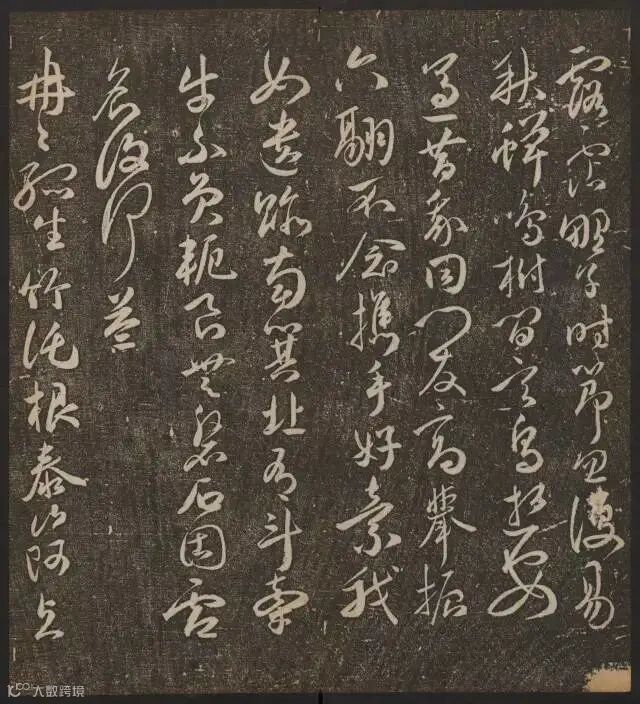 露霑野草時節忽復易
秋蟬鳴樹間玄鳥逝安
適昔我同門友高舉振
六翮不念攜手好棄我
如遺跡南箕北有斗牽
牛不負軛良無盤石固虛
名復何益
冉〻孤生竹結根泰山阿與
大数跨境